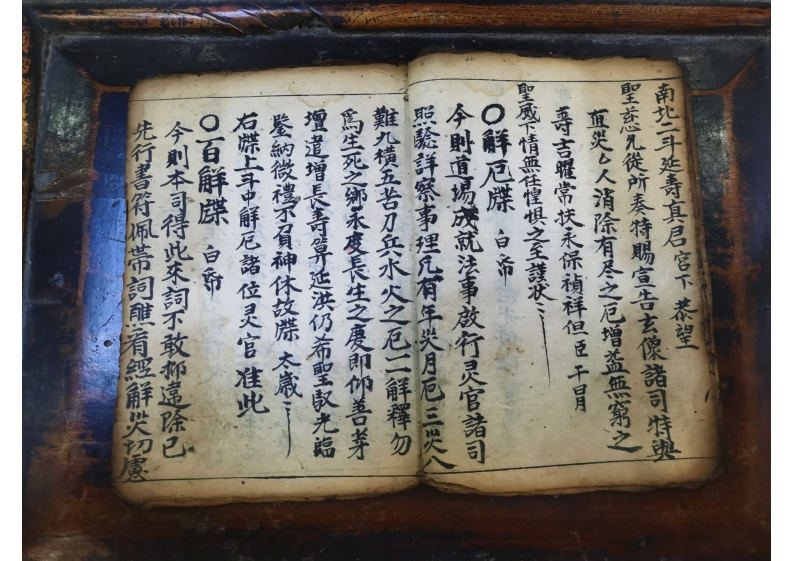 南北二斗延寿真君 宮下 恭望
聖慈允從所奏特賜宣告玄像諸司特與
直災厶人消除有尽之厄增益無窮之
壽吉曜常扶永保禎祥但臣干冐
聖威下情無任惶惧之至謹狀
〇解厄牒 白帋
今則道場成就法事啟行灵官諸司
照驗詳察事理凢有年災月厄三災八
難九橫五苦刀兵水火之厄一一解釋勿
爲生死之鄉永度長生之慶即仰善芽
增遣增長壽算延洪仍希聖馭光臨
鍳納微禮不負神休故牒 太歲
右牒上斗中解厄諸位灵官 准此
〇一百解牒 白帋
今則本司得此來詞不敢抑違除已
先行書符佩帶詞醮看經解災切慮